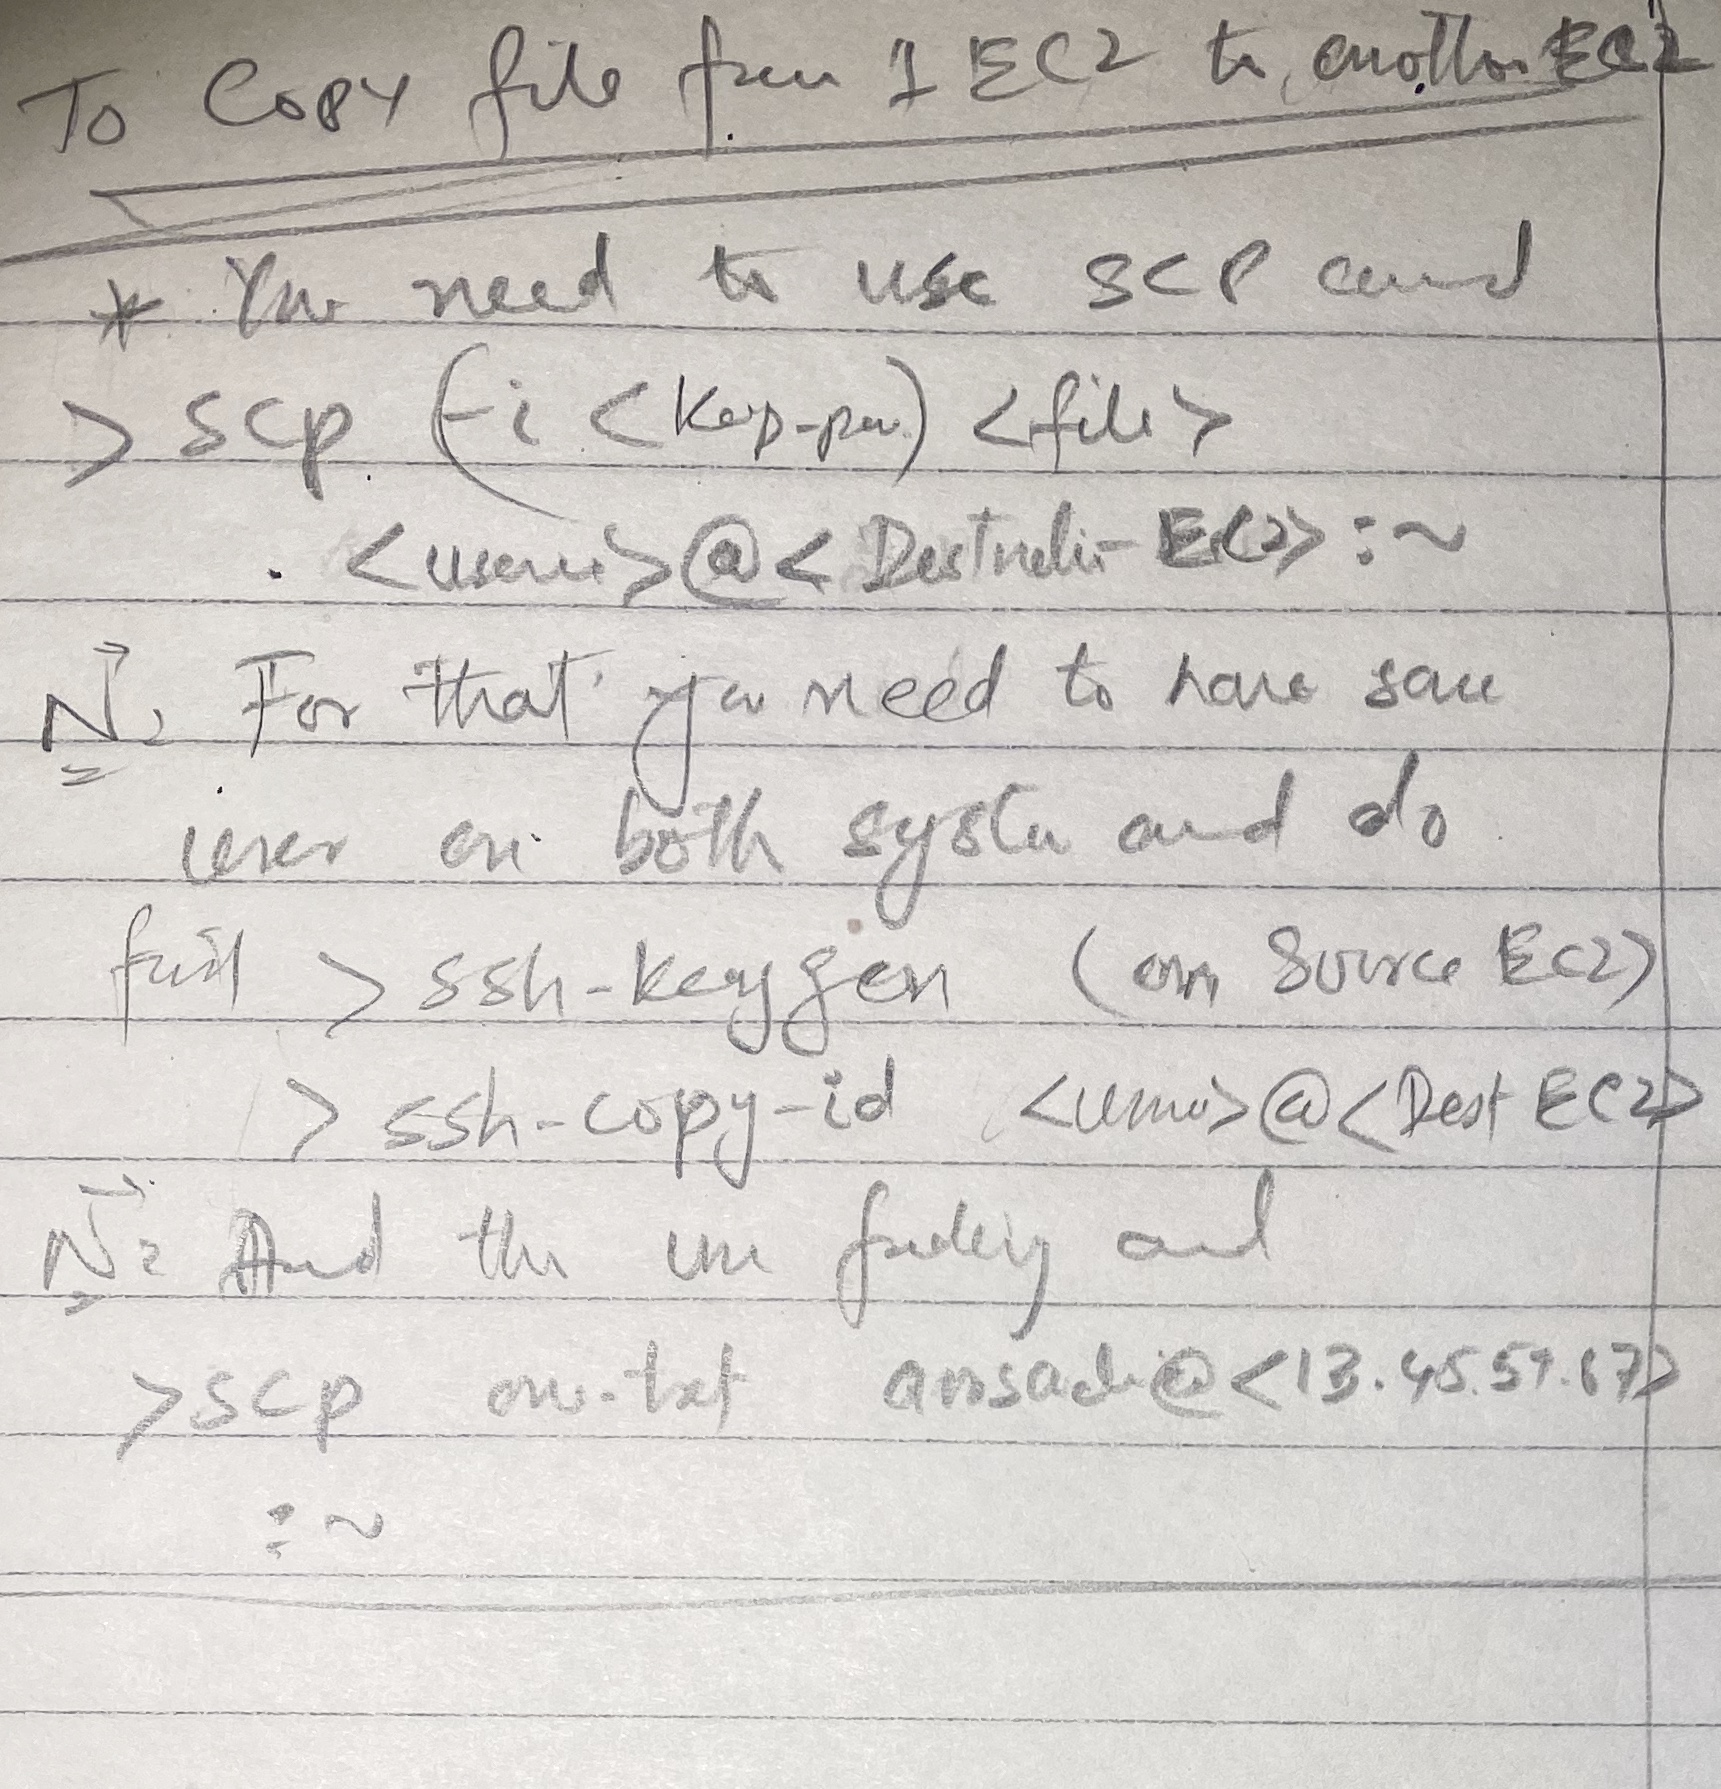 To Copy file from 1 EC2 to another EC2
* You need to use SCP cmd
> scp (-i <key-pair) <file>
<username>@<Destination EC2> :~
N: For that you need to have same
user on both system and do
first > ssh-keygen (on Source EC2)
> ssh-copy-id <username>@<Dest EC2>
N: And the use cmd
> scp one.txt @<13.45.57.67>
:~